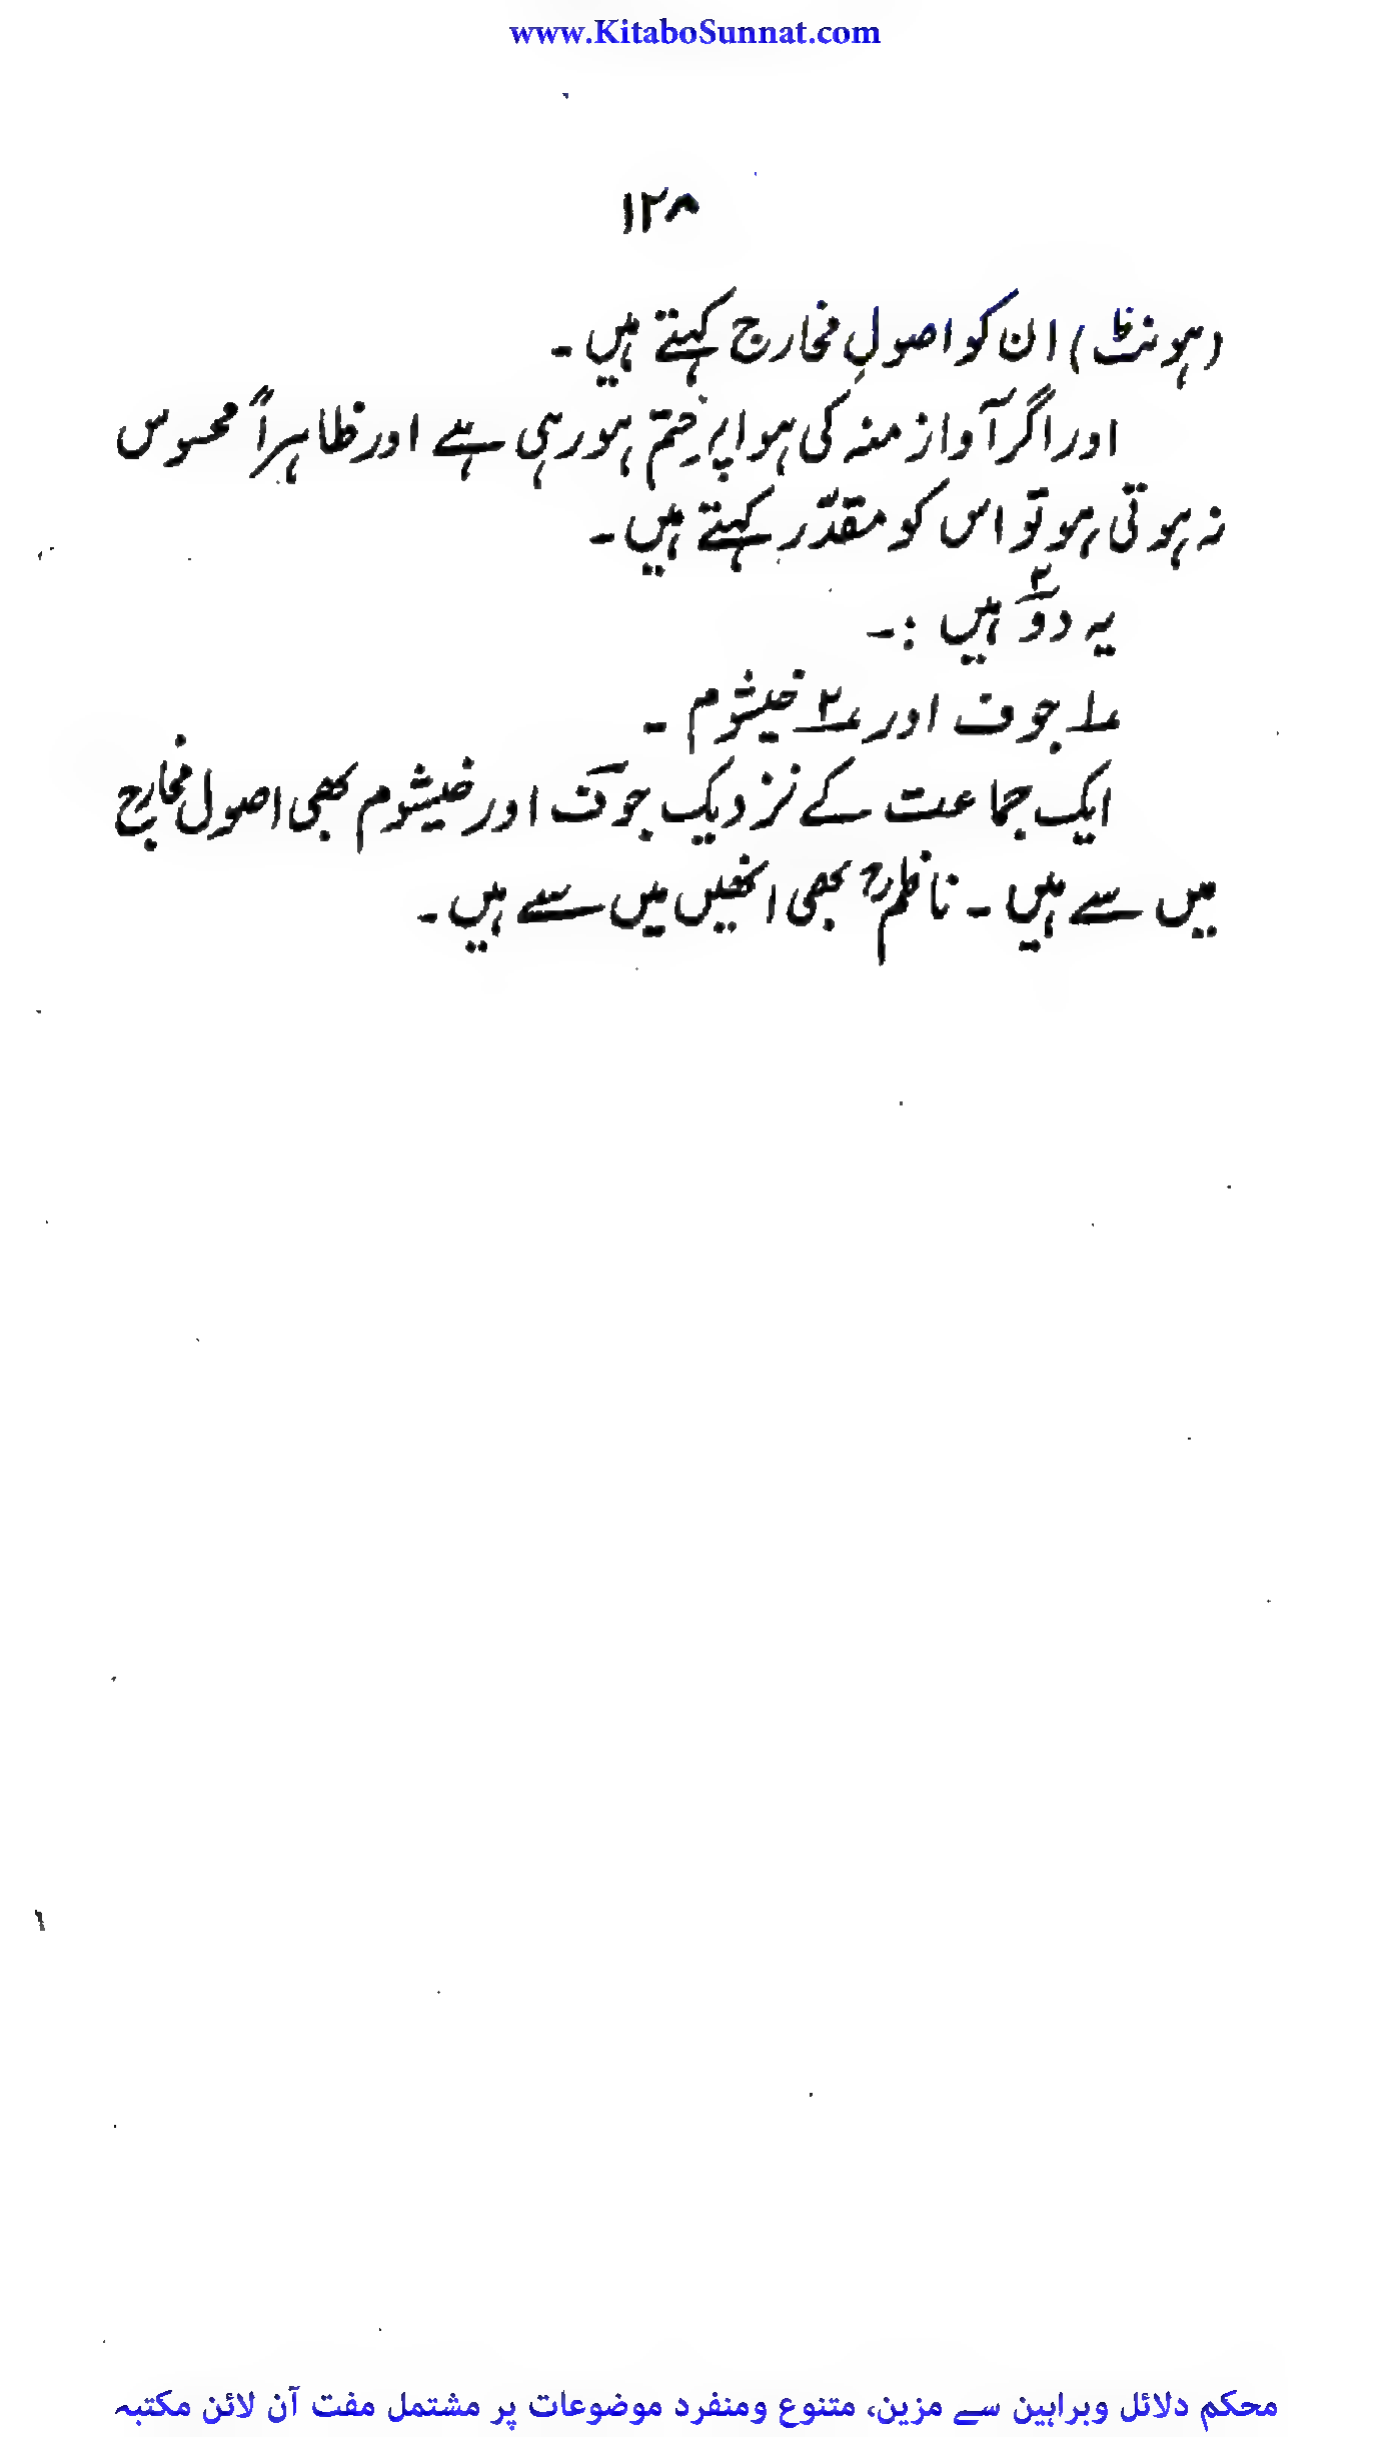 www.KitaboSunnat.com
۱۲۸
(ہونٹ) ان کو اصولِ مخارج کہتے ہیں ۔
اور اگر آواز منہ کی ہوا پر ختم ہو رہی ہے اور ظاہراً محسوس
نہ ہوتی ہو تو اس کو مقدّر کہتے ہیں ۔
یہ دو۲ ہیں :۔
۱؎ جوف اور ۲؎ خیشوم ۔
ایک جماعت کے نزدیک جوف اور خیشوم بھی اصول مخارج
میں سے ہیں ۔ ناظمؒ بھی انھیں میں سے ہیں ۔
محکم دلائل وبراہین سے مزین، متنوع ومنفرد موضوعات پر مشتمل مفت آن لائن مکتبہ